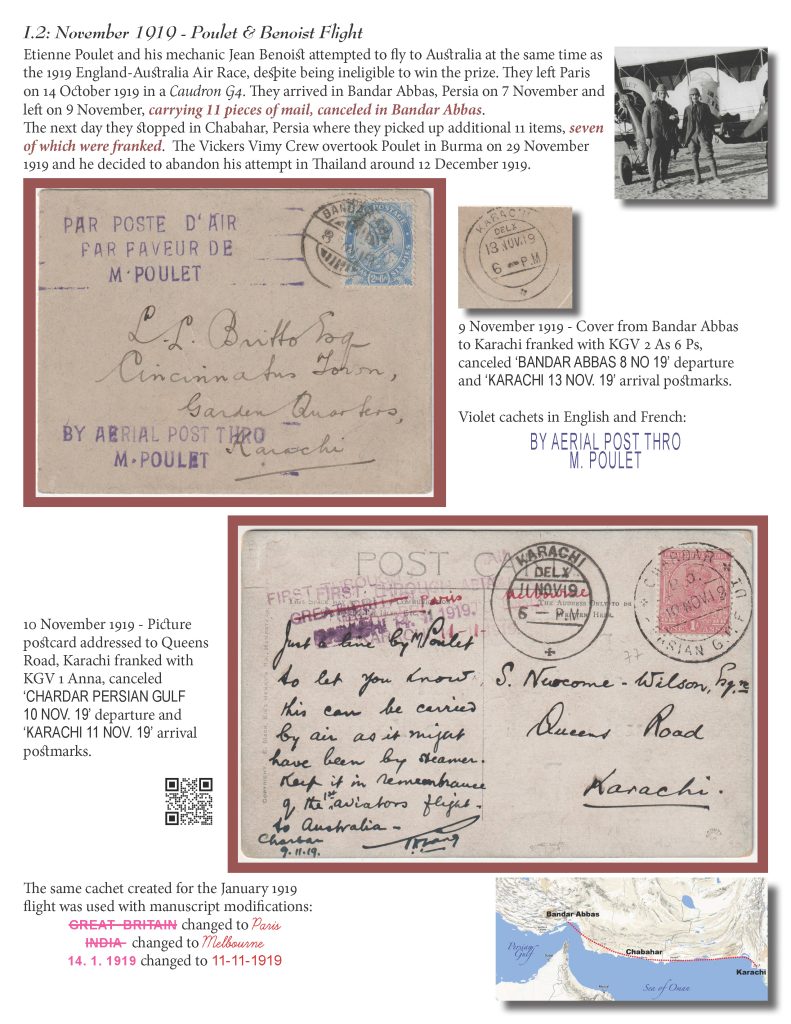 I.2: November 1919 - Poulet & Benoist Flight
Etienne Poulet and his mechanic Jean Benoist attempted to fly to Australia at the same time as
the 1919 England-Australia Air Race, despite being ineligible to win the prize. They left Paris
on 14 October 1919 in a Caudron G4. They arrived in Bandar Abbas, Persia on 7 November and
left on 9 November, carrying 11 pieces of mail, canceled in Bandar Abbas.
The next day they stopped in Chabahar, Persia where they picked up additional 11 items, seven
of which were franked. The Vickers Vimy Crew overtook Poulet in Burma on 29 November
1919 and he decided to abandon his attempt in Thailand around 12 December 1919.
PAR POSTE D'AIR
FAR FAVEUR DE
M·POULET
BANDAR
POSTAGE
L. L. Britto Esq
Cincinnatus Town,
Garden Quarters,
Karachi
BY AERIAL POST THRO
M·POULET
KARACHI
DELX
13 NOV.19
6 - P.M
9 November 1919 - Cover from Bandar Abbas
to Karachi franked with KGV 2 As 6 Ps,
canceled 'BANDAR ABBAS 8 NO 19' departure
and 'KARACHI 13 NOV. 19' arrival postmarks.
Violet cachets in English and French:
BY AERIAL POST THRO
M. POULET
10 November 1919 - Picture
postcard addressed to Queens
Road, Karachi franked with
KGV 1 Anna, canceled
'CHARDAR PERSIAN GULF
10 NOV. 19' departure and
'KARACHI 11 NOV. 19' arrival
postmarks.
POST CA
FIRST THROUGH
Paris
Melbourne
14. 11. 1919.
THE ADDRESS ONLY TO BE
KARACHI
DELX
11 NOV.19
6 - P.M
CHARDAR
P.O.
10 NOV.19
PERSIAN GULF
77
Just a line by M Poulet
to let you know
this can be carried
by air as it might
have been by steamer.
Keep it in remembrance
of the 1st aviators flight
to Australia -
Charbar
9.11.19.
S. Newcome-Wilson, Esq.re
Queens Road
Karachi.
The same cachet created for the January 1919
flight was used with manuscript modifications:
GREAT BRITAIN changed to Paris
INDIA changed to Melbourne
14. 1. 1919 changed to 11-11-1919
Bandar Abbas
Persian
Gulf
Chabahar
Karachi
Sea of Oman